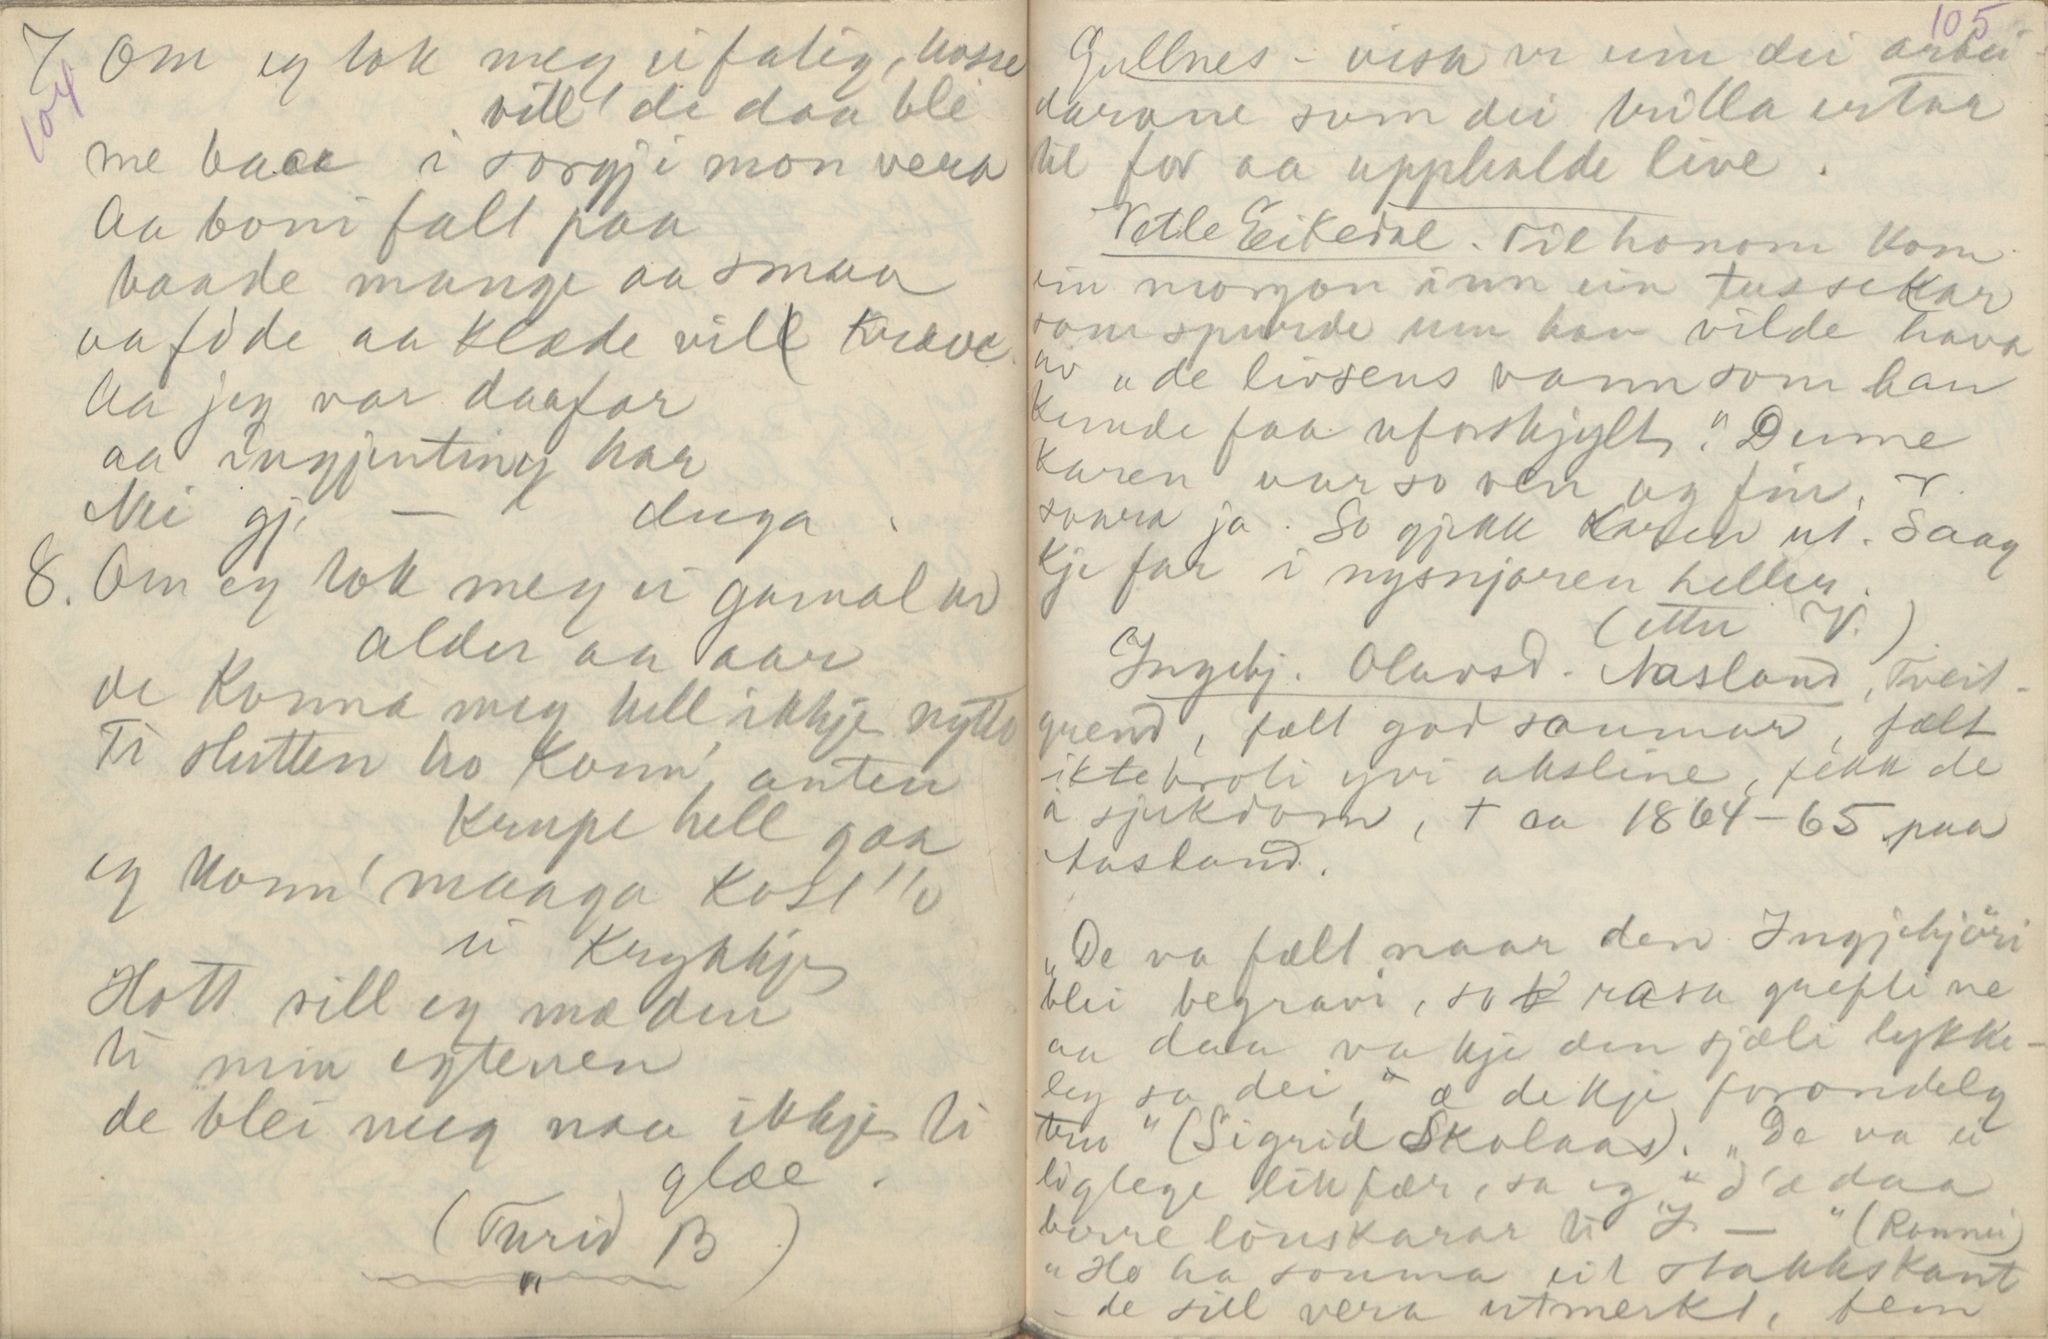 104
7. Om eg tok meg ei fatig, kosse
vill' de daa bli
me baae i sorgji mon vera
Aa boni falt paa
baade mange aa smaa
aa föde aa klæde vill kræve.
Aa jeg var daafor
aa ingjenting har
Nei gj. — duga.
8. Om eg tok meg ei gamal av
alder aa aar
de konna meg hell ikkje nytte
Ti slutten ho konn' anten
krupe hell gaa
eg konn' maaga kost'o
ei krykkje
Hott sill eg mæ den
ti min egteven
de blei meg naa ikkje ti
glæe.
(Turid B)
"
105
Gullnes - visa er um dei arbei-
darane som dei trilla ertar
til for aa upphalde live.
Vetle Eikedal. Til honom kom
ein morgon inn ein tussekar
som spurde um han vilde hava
av "de livsens vann som han
kunde faa uforskjylt." Denne
karen var so ven og fin. V.
svara ja. So gjekk karen ut. Saag
kje far i nysnjoren heller.
(etter V.)
Ingebj. Olavsd. Aasland, Tveit-
grend, fælt god saumar, fælt
iktebroti yvi aksline, fekk de
i sjukdom, † ca 1864-65 paa
Aasland.
"De va fælt naar den Ingjebjöri
blei begravi, so rasa grefti ne
aa daa va kje den sjæli lykke-
leg sa dei," æ de kje forondeleg
tru" (Sigrid Skolaas). "De va ei
liglege likfær, sa eg," d'æ daa
berre lönskarar ti I — " (Ronnei)
"Ho ha souma eit stakkskant
- de sill vera utmerkt, fem